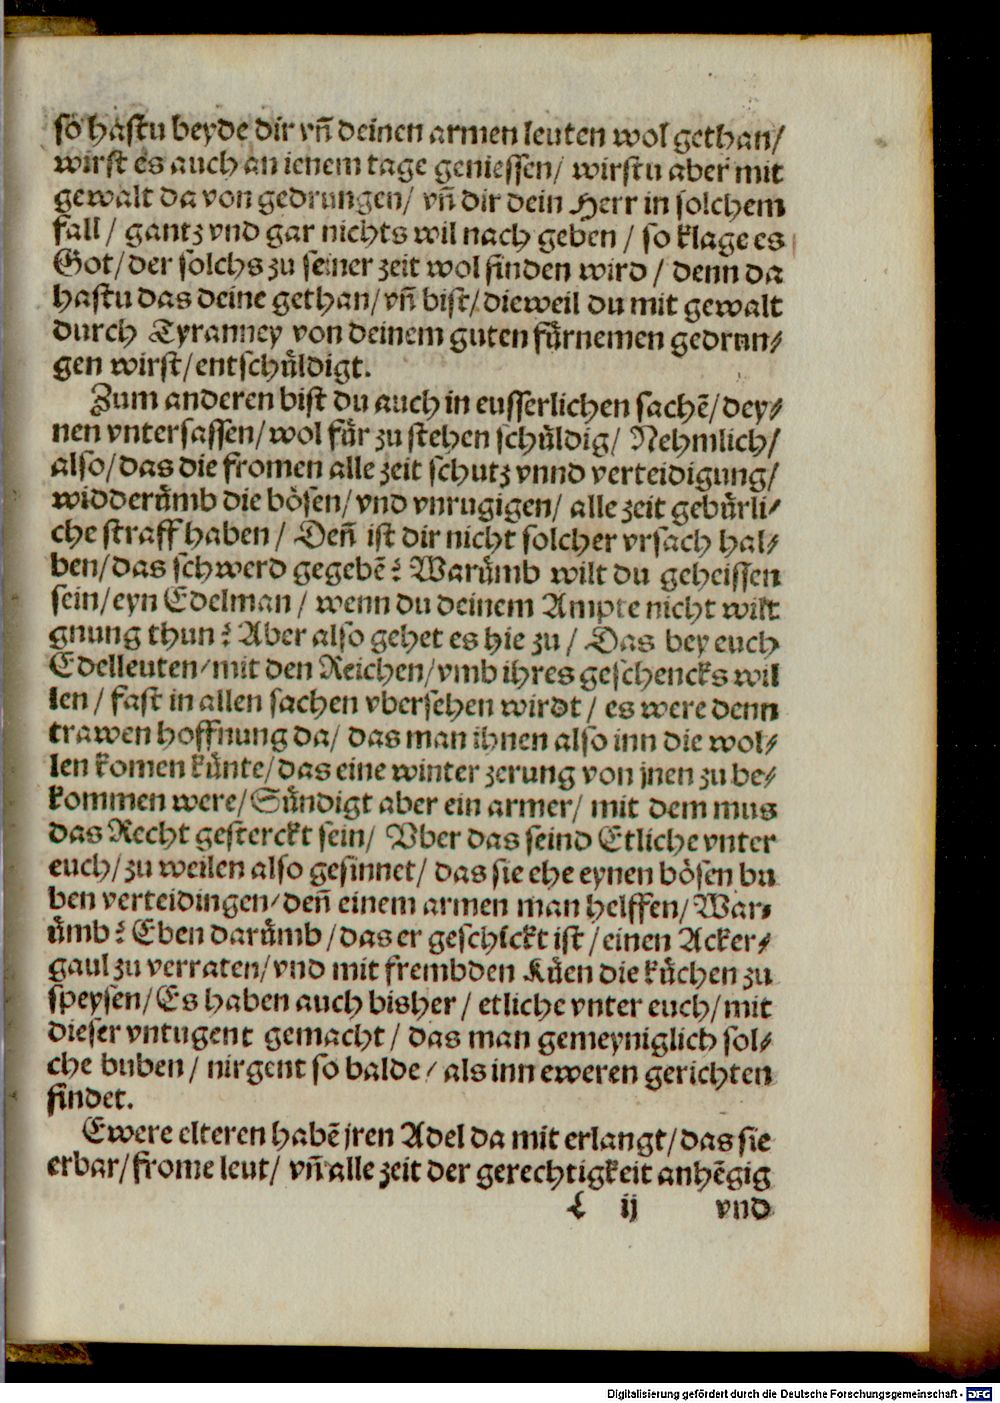 so hastu beyde dir vñ deinen armen leuten wol gethan/
wirst es auch an ienem tage geniessen/ wirstu aber mit
gewalt da von gedrungen/ vñ dir dein Herr in solchem
fall/ gantz vnd gar nichts wil nach geben/ so klage es
Got/ der solchs zu seiner zeit wol finden wird/ denn da
hastu das deine gethan/ vñ bist/ dieweil du mit gewalt
durch Tyranney von deinem guten fürnemen gedrun⸗
gen wirst/ entschüldigt.
Zum anderen bist du auch in eusserlichen sachē/ dey⸗
nen vntersassen/ wol für zu stehen schüldig/ Nehmlich/
also/ das die fromen alle zeit schutz vnnd verteidigung/
widderümb die bösen/ vnd vnrugigen/ alle zeit gebürli⸗
che straff haben/ Deñ ist dir nicht solcher vrsach hal⸗
ben/ das schwerd gegebē? Warümb wilt du geheissen
sein/ eyn Edelman/ wenn du deinem Ampte nicht wilt
gnung thun? Aber also gehet es hie zu/ Das bey euch
Edelleuten/ mit den Reichen/ vmb ihres geschencks wil
len/ fast in allen sachen vbersehen wirdt/ es were denn
trawen hoffnung da/ das man ihnen also inn die wol⸗
len komen künte/ das eine winter zerung von jnen zu be⸗
kommen were/ Sündigt aber ein armer/ mit dem mus
das Recht gesterckt sein/ Vber das seind Etliche vnter
euch/ zu weilen also gesinnet/ das sie ehe eynen bösen bu
ben verteidingen/ deñ einem armen man helffen/ War⸗
ümb? Eben darümb/ das er geschickt ist/ einen Acker⸗
gaul zu verraten/ vnd mit frembden Küen die küchen zu
speysen/ Es haben auch bisher/ etliche vnter euch/ mit
dieser vntugent gemacht/ das man gemeyniglich sol⸗
che buben/ nirgent so balde/ als inn eweren gerichten
findet.
Ewere elteren habē jren Adel da mit erlangt/ das sie
erbar/ frome leut/ vñ alle zeit der gerechtigkeit anhēgig
C ij vnd
Digitalisierung gefördert durch die Deutsche Forschungsgemeinschaft - DFG